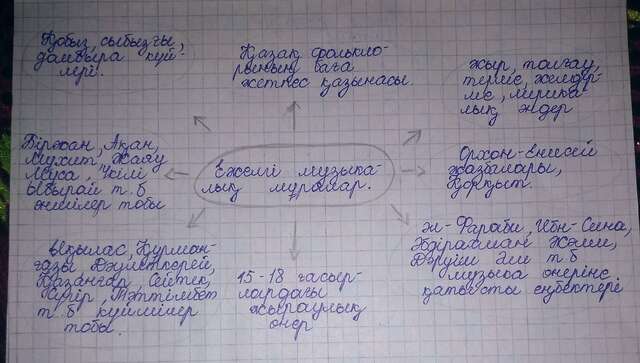 Қобыз, сыбызғы,
домбыра күй-
лері.
Қазақ фолькло-
рының баға
жетпес қазынасы.
жыр, толғау,
терме, желдір-
ме, лирика-
лық әндер
Біржан, Ақан,
Мұхит, Жаяу
Мұса, Үкілі
Ыбырай т.б
әншілер тобы
Ежелгі музыка-
лық мұралар.
Орхон-Енисей
жазбалары,
Қорқыт.
Ықылас, Құрман-
ғазы Дәулеткерей,
Қазанғап, Сейтек,
Тәттімбет
т.б күйшілер
тобы.
15-18 ғасыр-
лардағы
жыраулық
өнер
әл-Фараби, Ибн-Сина,
Әбдірахман Жәми,
Дәруіш Әли т.б
музыка өнеріне
қатысты еңбектері